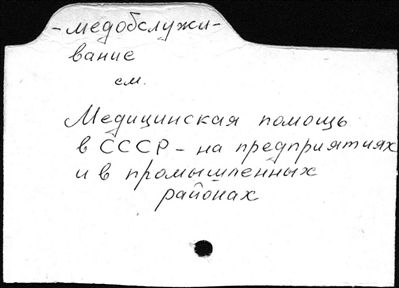 -медобслужи-
вание
см.
Медицинская помощь
в СССР - на предприятиях
и в промышленных
районах